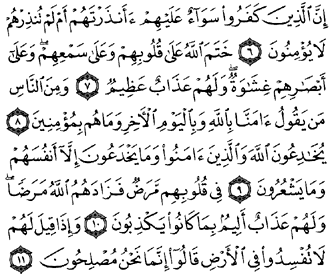 إِنَّ ٱلَّذِينَ كَفَرُوا۟ سَوَآءٌ عَلَيْهِمْ ءَأَنذَرْتَهُمْ أَمْ لَمْ تُنذِرْهُمْ
لَا يُؤْمِنُونَ ۝٦ خَتَمَ ٱللَّهُ عَلَىٰ قُلُوبِهِمْ وَعَلَىٰ سَمْعِهِمْ ۖ وَعَلَىٰٓ
أَبْصَـٰرِهِمْ غِشَـٰوَةٌ ۖ وَلَهُمْ عَذَابٌ عَظِيمٌ ۝٧ وَمِنَ ٱلنَّاسِ
مَن يَقُولُ ءَامَنَّا بِٱللَّهِ وَبِٱلْيَوْمِ ٱلْـَٔاخِرِ وَمَا هُم بِمُؤْمِنِينَ ۝٨
يُخَـٰدِعُونَ ٱللَّهَ وَٱلَّذِينَ ءَامَنُوا۟ وَمَا يَخْدَعُونَ إِلَّآ أَنفُسَهُمْ
وَمَا يَشْعُرُونَ ۝٩ فِى قُلُوبِهِم مَّرَضٌ فَزَادَهُمُ ٱللَّهُ مَرَضًا ۖ
وَلَهُمْ عَذَابٌ أَلِيمٌۢ بِمَا كَانُوا۟ يَكْذِبُونَ ۝١٠ وَإِذَا قِيلَ لَهُمْ
لَا تُفْسِدُوا۟ فِى ٱلْأَرْضِ قَالُوٓا۟ إِنَّمَا نَحْنُ مُصْلِحُونَ ۝١١